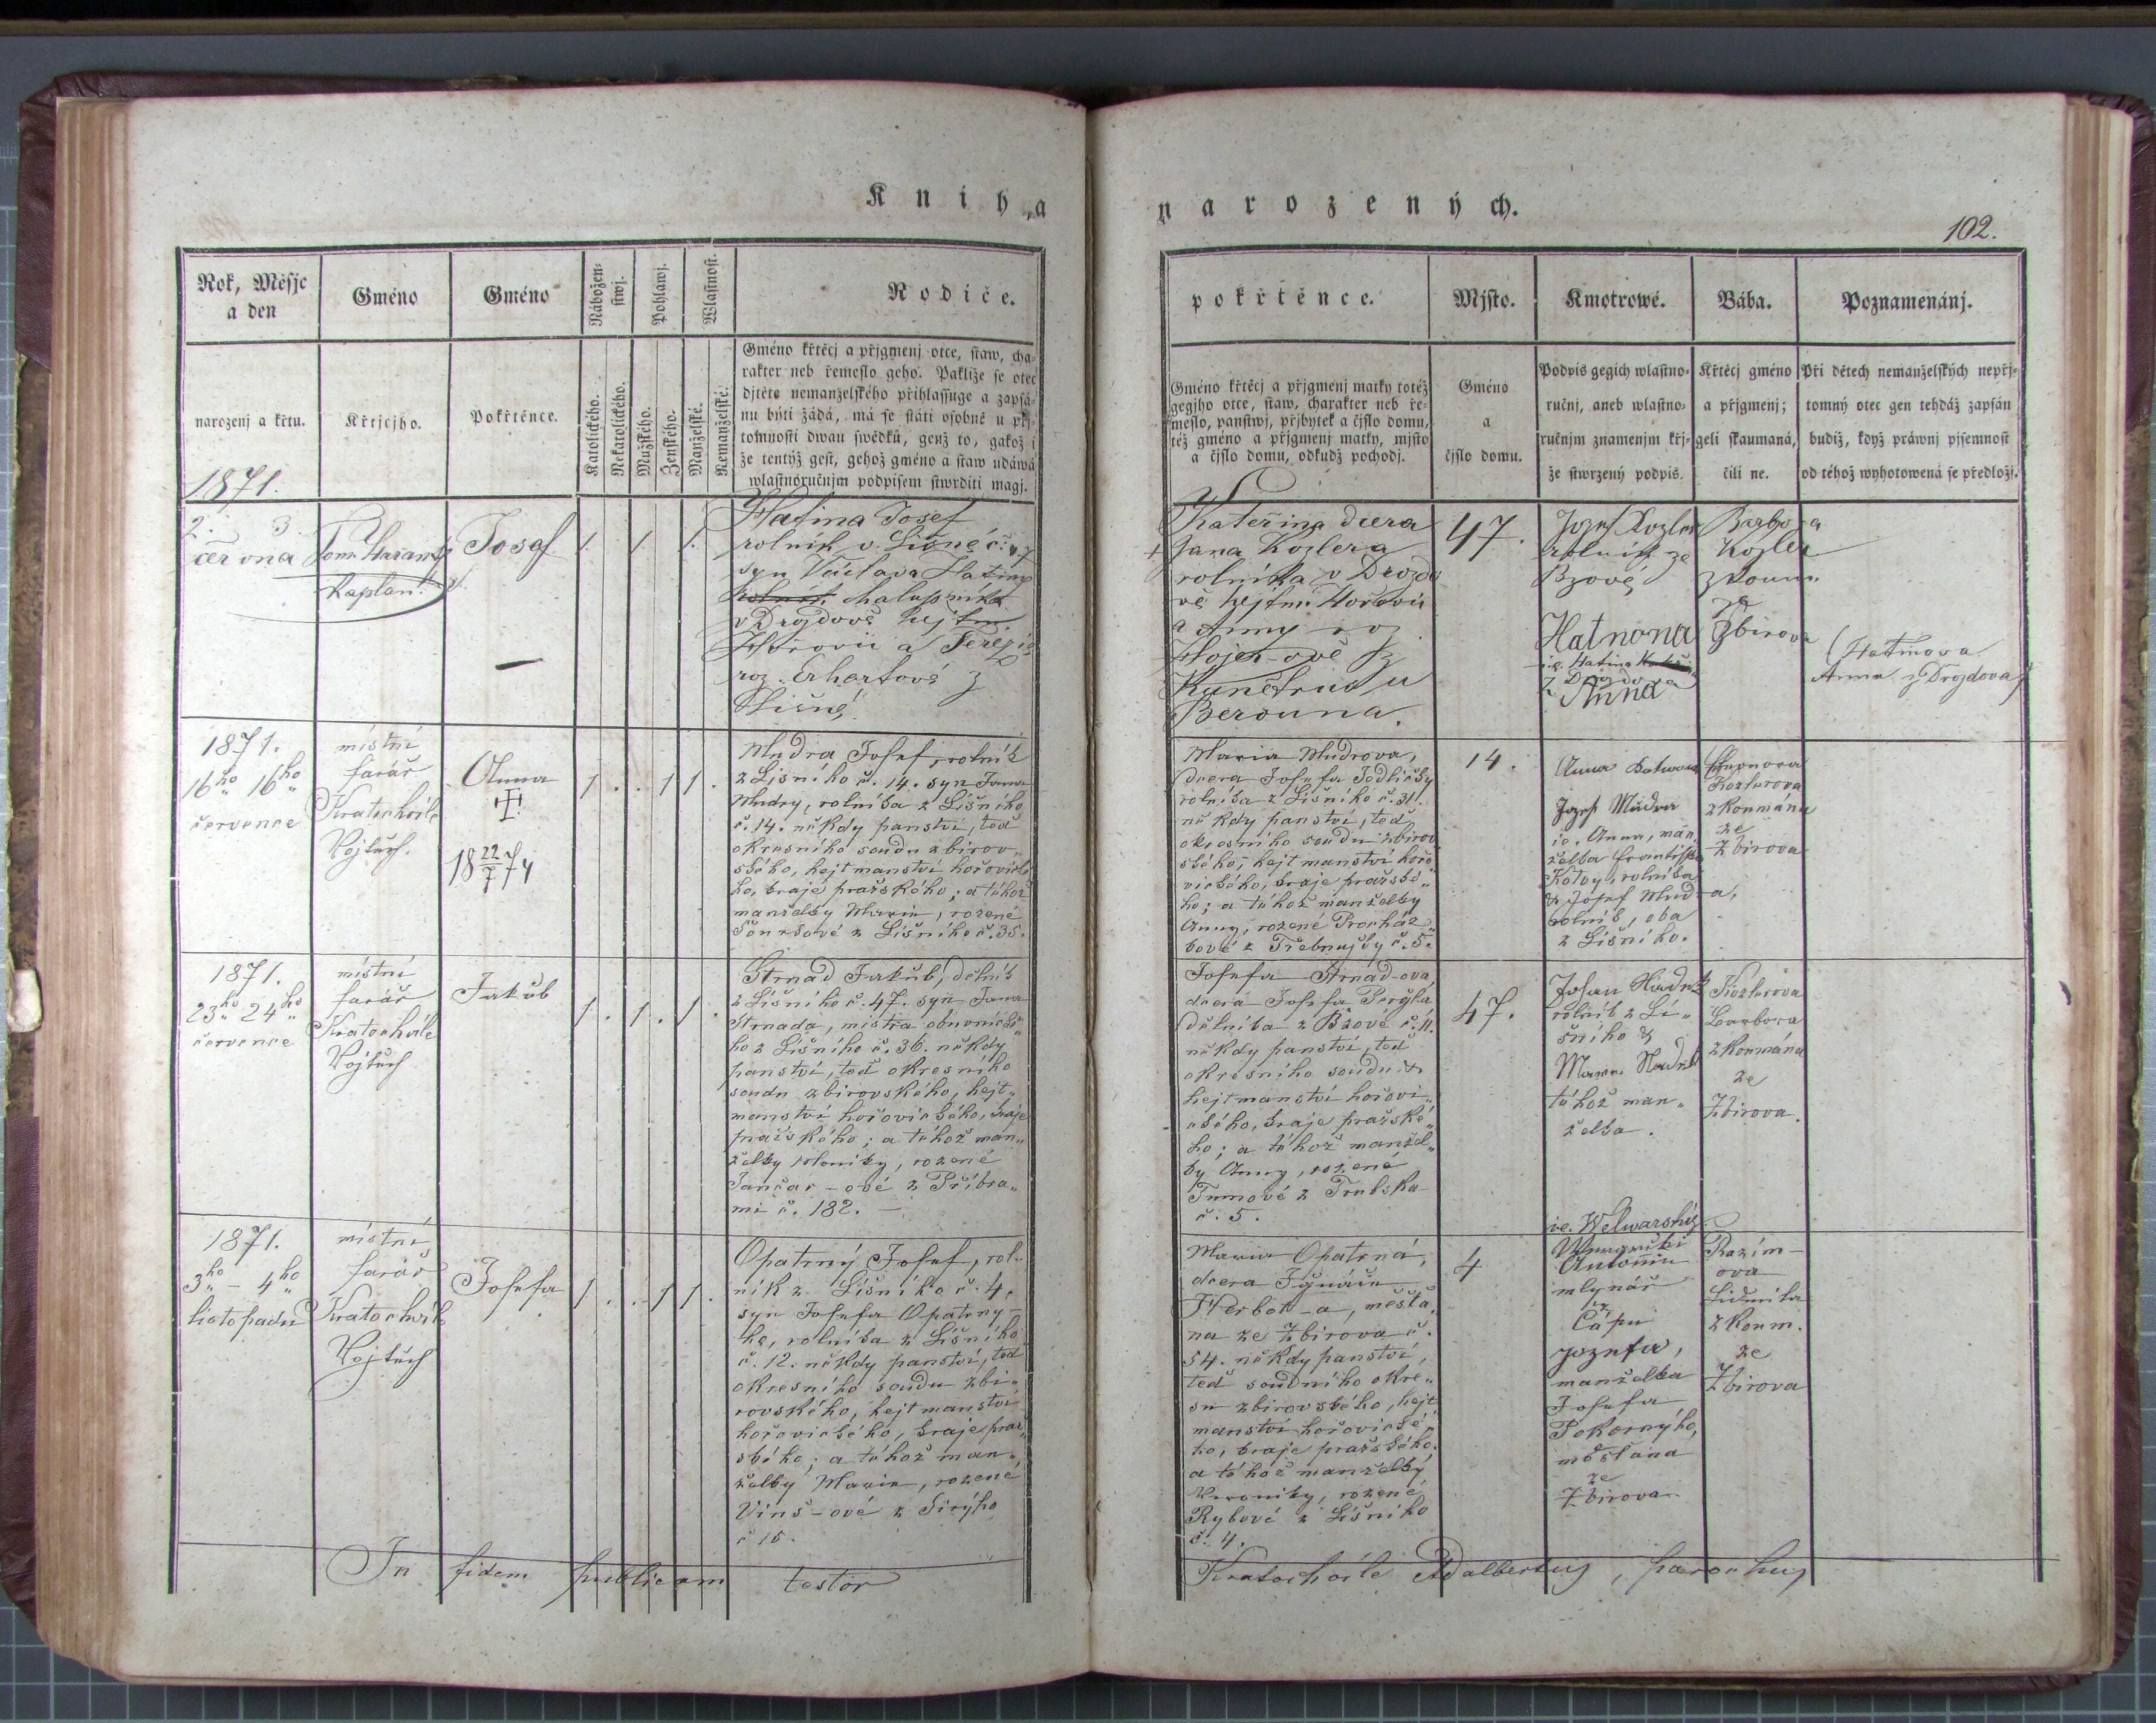 Kniha
narozených.
102.
Rok, Měsíc
a den
Gméno
Gméno
Nábožen-
stwj.
Pohlawj.
Wlastnost.
Rodiče.
narozenj a křtu.
Křtjcjho.
Pokřtěnce.
Katolického.
Nekatolického.
Mužského.
Ženského.
Manželské.
Nemanželské.
Gméno křtěcj a přjgmenj otce, staw, cha-
rakter neb řemeslo geho. Pakliže se otec
djtěte nemanželského přihlassuge a zapsá-
nu býti žádá, má se státi osobně u přj-
tomnosti dwau swědků, genž to, gakož i
že tentýž gest, gehož gméno a staw udáwá
wlastnoručnjm podpisem stwrditi magj.
1871.
pokřtěnce.
Mjsto.
Kmotrowé.
Bába.
Poznamenánj.
Gméno křtěcj a přjgmenj matky totéž
gegjho otce, staw, charakter neb ře-
meslo, panstwj, přjbytek a čjslo domu,
též gméno a přjgmenj matky, mjsto
a čjslo domu, odkudž pocházj.
Gméno
a
čjslo domu.
Podpis gegich wlastno-
ručnj, aneb wlastno-
ručnjm znamenjm křj-
že stwrzený podpis.
Křtěcj gméno
a přjgmenj;
geli skaumaná,
čili ne.
Při dětech nemanželských nepřj-
tomný otec gen tehdáž zapsán
budiž, když práwnj pjsemnost
od téhož wyhotowená se předložj.
2. 3.
června
Kaplan
Josef
1. 1. 1.
Hatina Josef
rolník v Lišné č. 47
syn Václava Hatiny
rolník chalupníka
v Drozdově hejtm.
Hořovic a Terezie
roz. Erhartové z
Lišné
Kateřina dcera
Jana Kozlera
rolníka v Drozdo
vě hejtm. Hořovic
a Anny roz.
z
u
Berouna.
47.
Jozef Kozler
rolník ze
Bzové
Hatinova
Anna
Barbora
Kozler
zkoum.
ze
Zbirova
(Hatinova
Anna z Drozdova)
1871.
16ho 16ho
července
místní
farář
Kratochvíle
Vojtěch.
Anna
18 22/7 74
1 . . 1 1 .
Mudra Josef, rolník
z Lišního č. 14. syn Jana
Mudry, rolníka z Lišního
č. 14. někdy panství, teď
okresního soudu zbirov„
ského, hejtmanství hořovické
ho, kraje pražského; a téhož
manželky Marie, rozené
z Lišního č. 35.
Maria Mudrova,
dcera Josefa Jedličky
rolníka z Lišního č. 31.
někdy panství, teď
okresního soudu zbirov
ského, hejtmanství hořo„
vického, kraje pražské„
ho; a téhož manželky
Anny, rozené Procház„
kové z Třebnušky č. 5.
14.
Jozef Mudra
ie. Anna, man„
želka Františka
rolníka
& Josef Mudra,
rolník, oba
z Lišního.
Kozlerova
zkoumána
ze
Zbirova
1871.
23ho 24ho
července
místní
farář
Kratochvíle
Vojtěch
Jakub
1 . 1 . 1 .
Strnad Jakub, dělník
z Lišního č. 47. syn Jana
Strnada, mistra obuvnické„
ho z Lišního č. 36. někdy
panství, teď okresního
soudu zbirovského, hejt„
manství hořovického, kraje
pražského; a téhož man„
želky Moniky, rozené
Jančar-ové z Příbra„
mi č. 182. –
Josefa Strnad-ova
dcera Josefa
dělníka z Bzové č. 11.
někdy panství, teď
okresního soudu &
hejtmanství hořovi„
ckého, kraje pražské„
ho; a téhož manžel„
ky Anny, rozené
Tumové z Trubska
č. 5.
47.
rolník z Li„
šního &
téhož man„
želka.
Kozlerova
Barbora
zkoumána
ze
Zbirova.
1871.
3ho – 4ho
listopadu
místní
farář
Kratochvíle
Vojtěch
Josefa
1 . . 1 1 .
Opatrný Josef, rol„
ník z Lišního č. 4.
syn Josefa Opatrný-
ho, rolníka z Lišního
č. 12. někdy panství, teď
okresního soudu zbi„
rovského, hejtmanství
hořovického, kraje praž„
ského; a téhož man„
želky Marie, rozené
Vinš-ové z Sirýho
č 15.
Maria Opatrná,
dcera Ignáce
Herbot-a, měšťa„
na ze Zbirova č.
54. někdy panství,
teď soudního okre„
su zbirovského, hejt„
manství hořovické„
ho, kraje pražského.
a téhož manželky
Veroniky, rozené
Rybové z Lišního
č. 4.
4
ie. Welwarský
Antonín
mlynář
z
Čápu
Jozefa,
manželka
Josefa
Pokornýho,
měšťana
ze
Zbirova
Razím-
ova
Lidmila
zkoum.
ze
Zbirova
In fidem publicam testor
Kratochvíle Adalbertus, parochus